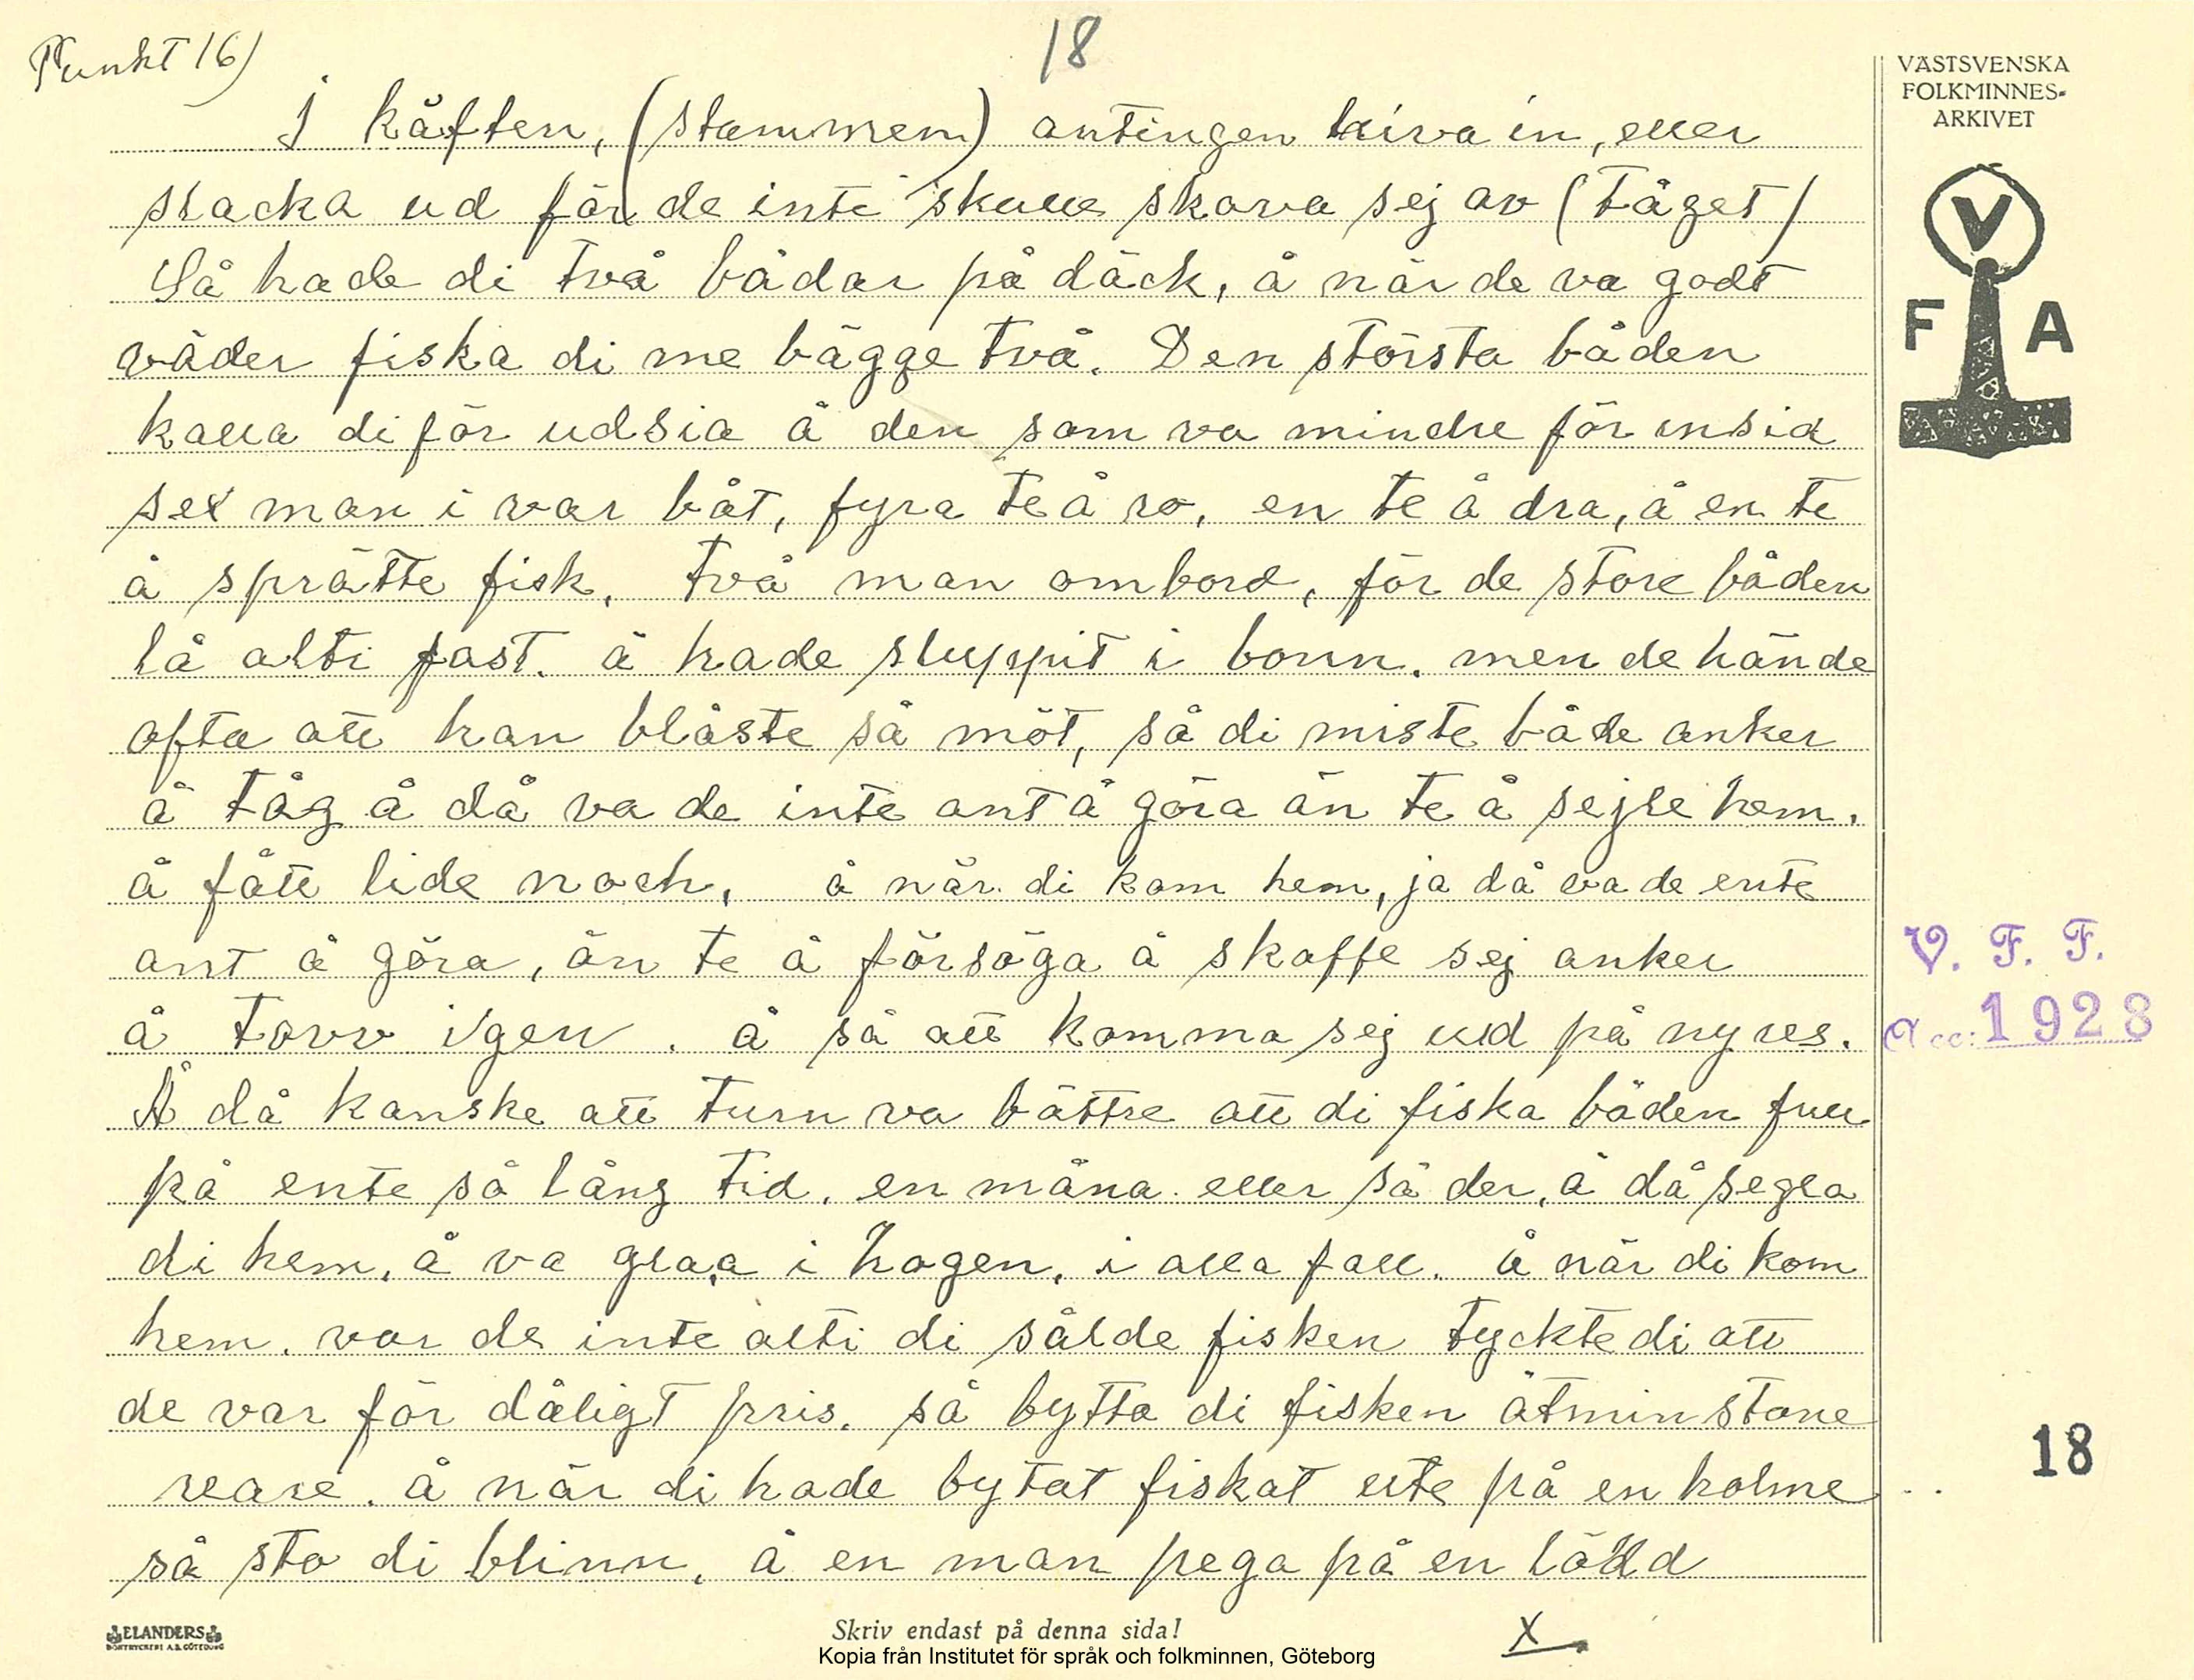 Punkt 16)
18
I käften, (stammen) antingen hiva in, eller
slacka ud för de inte skulle skava sej av (tåget)
Så hade di två bådar på däck, å när de va godt
väder fiska di me bägge två. Den största båden
kalla di för udsia å den som va mindre för insia
sex man i var båt, fyra te å ro, en te å dra, å en te
å sprätte fisk, två man ombord, för de store båden
lå alti fast. å hade sluppit i bonn. men de hände
ofta att han blåste så möt, så di miste både anker
å tåg å då va de inte ant å göra än te å sejle hem.
å fått lide noch, å när di kom hem, ja då va de ente
ant å göra, än te å försöga å skaffe sej anker
å tovv igen. å så att komma sej ud på ny res.
Å då kanske att turn va bättre att di fiska båden full
på ente så lång tid. en måna eller så der, å då segla
di hem, å va glaa i hogen, i alla fall. å när di kom
hem. var de inte alti di sålde fisken tyckte di att
de var för dåligt pris. så bytta di fisken åtminstone
reare. å när di hade bytat fiskat ute på en holme
så sto di blinn, å en man pega på en lådd
x
VÄSTSVENSKA
FOLKMINNES-
ARKIVET
V
F A
V. F. F.
Acc: 1928
18
ELANDERS
BOKTRYCKERI A.B. GÖTEBORG
Skriv endast på denna sida!
Kopia från Institutet för språk och folkminnen, Göteborg